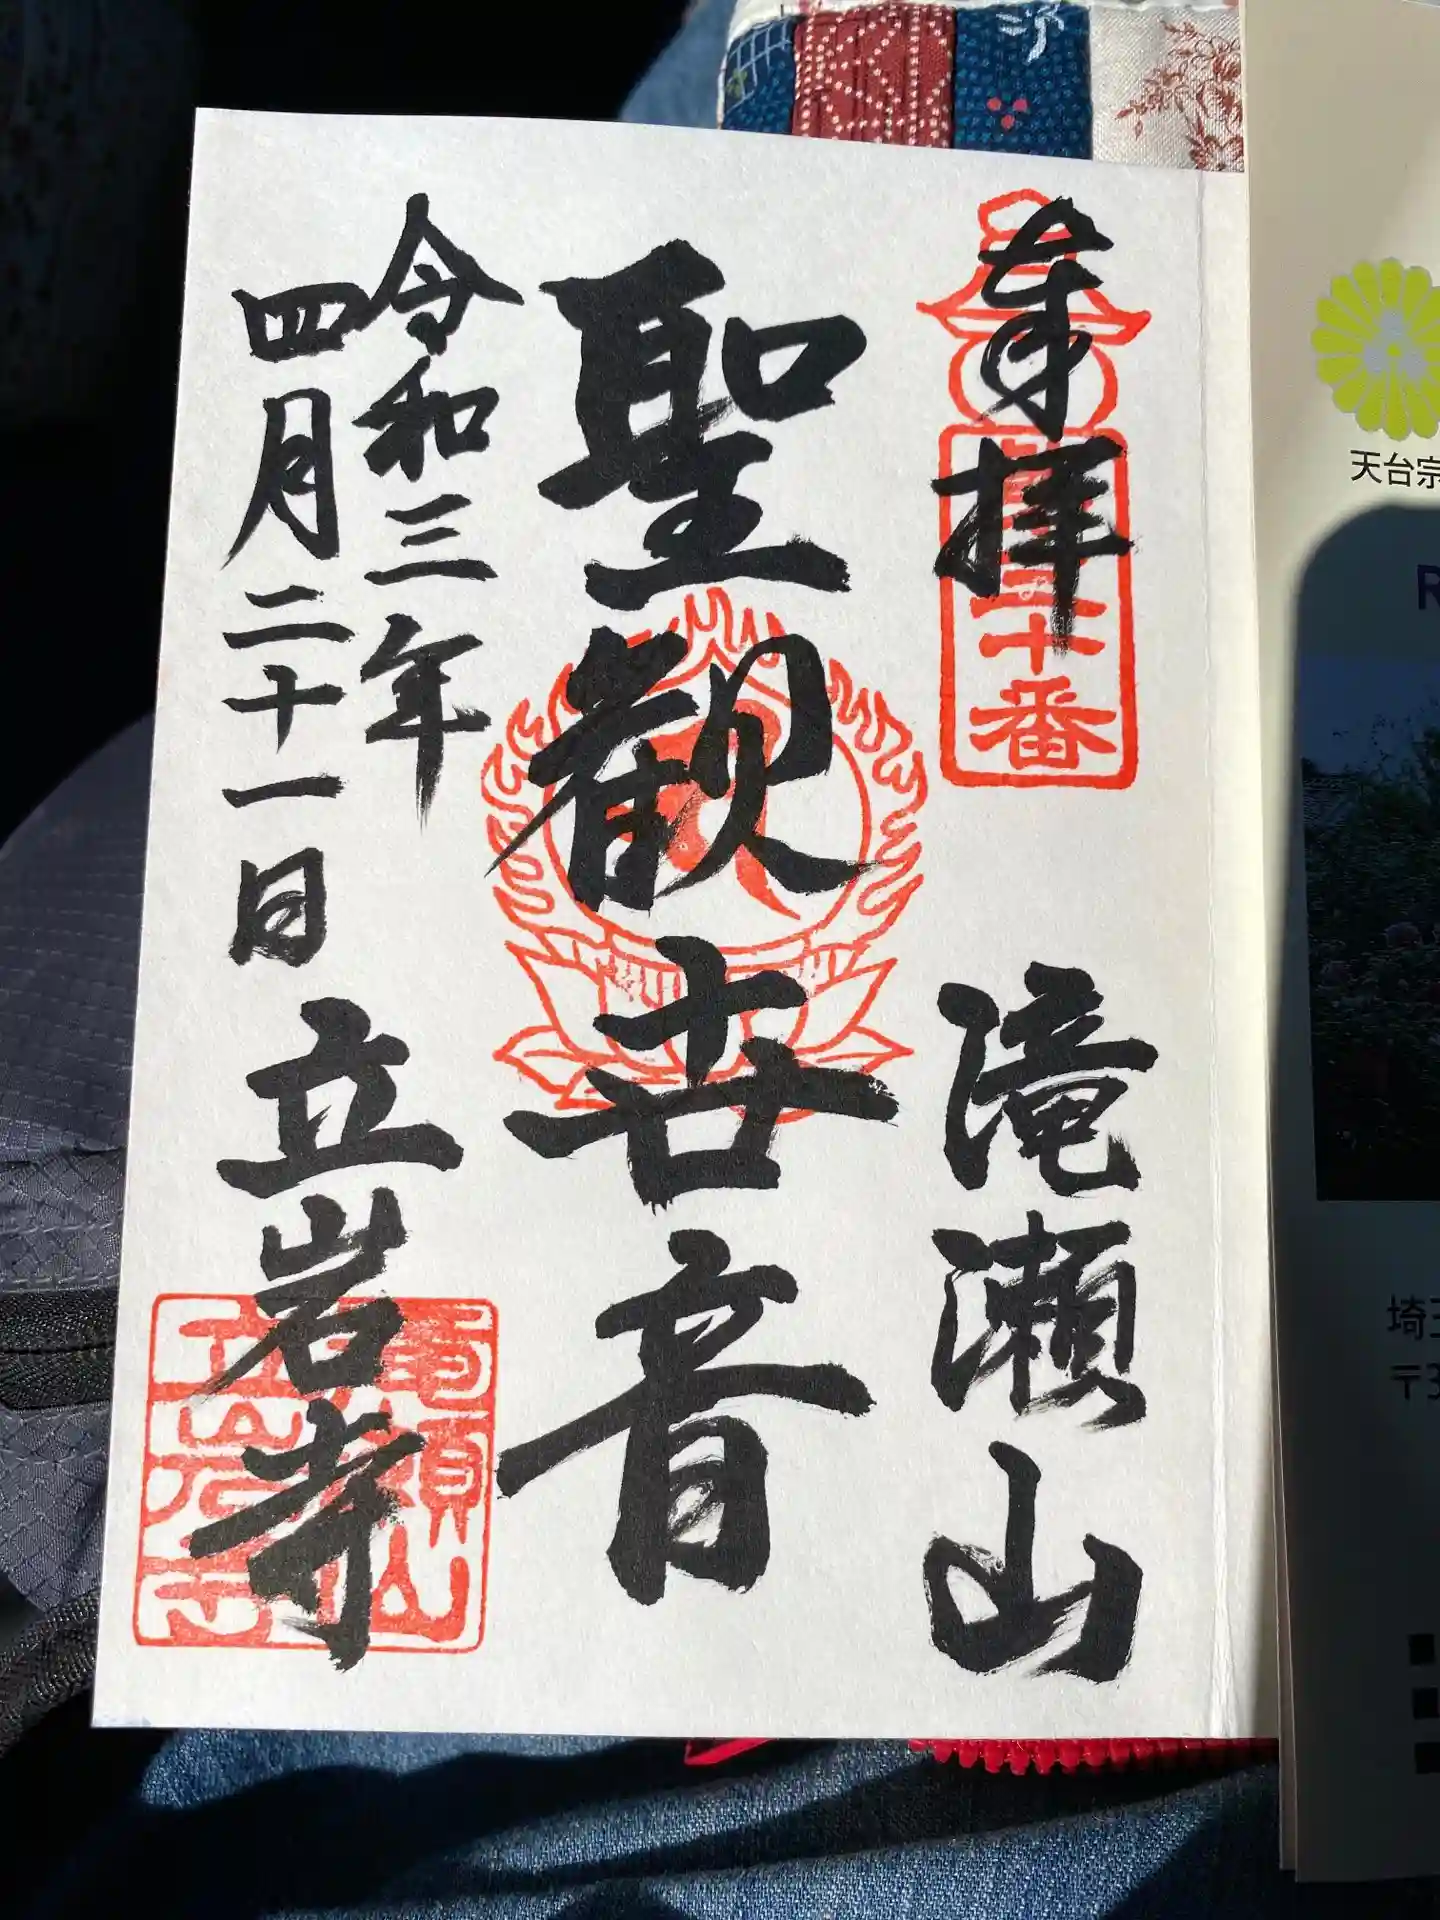 奉拝
滝瀬山
聖観世音
令和三年
四月二十一日
立岩寺
十番
天台宗
R
埼玉
〒3